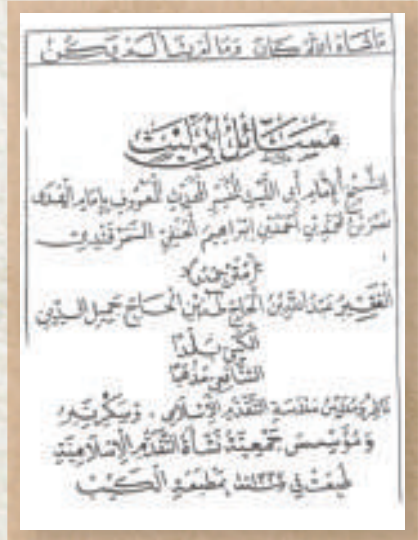 مَا شَاءَ اللّٰهُ كَانَ وَمَا لَمْ يَشَأْ لَمْ يَكُنْ
مَسَائِلُ أَبِي لَيْث
لِلشَّيْخِ الْإِمَامِ أَبِي اللَّيْثِ الْمُفَسِّرِ الْمُحَدِّثِ الْمَعْرُوفِ بِإِمَامِ الْهُدَى
نَصْرِ بْنِ مُحَمَّدِ بْنِ أَحْمَدَ بْنِ إِبْرَاهِيمَ الْحَنَفِيِّ السَّمَرْقَنْدِيِّ
الْفَقِيرُ عَبْدُ اللّٰهِ بْنُ الْحَاجِّ بْنِ الْحَاجِّ جَمِيلِ الدِّينِ
بَلَدًا
الشَّافِعِي مَذْهَبًا
مَدْرَسَةِ التَّقَدُّمِ الْإِسْلَامِي
وَمُؤَسِّسُ جَمْعِيَّةِ نَشْأَةِ التَّقَدُّمِ الْإِسْلَامِيَّةِ
طُبِعَتْ فِي بِمَطْبَعَةِ